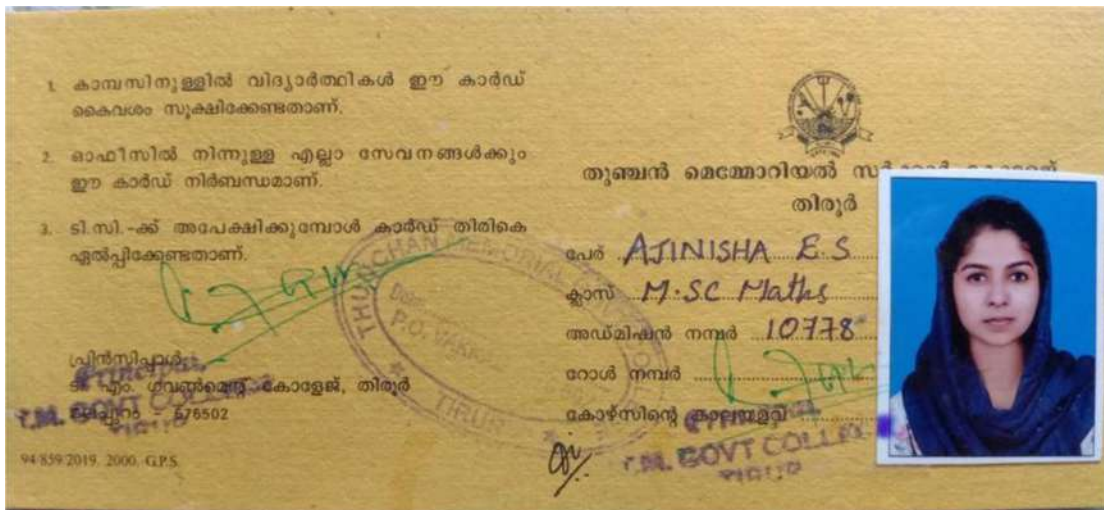 1. കാമ്പസിനുള്ളിൽ വിദ്യാർത്ഥികൾ ഈ കാർഡ്
കൈവശം സൂക്ഷിക്കേണ്ടതാണ്.
2. ഓഫീസിൽ നിന്നുള്ള എല്ലാ സേവനങ്ങൾക്കും
ഈ കാർഡ് നിർബന്ധമാണ്.
3. ടി.സി.-ക്ക് അപേക്ഷിക്കുമ്പോൾ കാർഡ് തിരികെ
ഏൽപ്പിക്കേണ്ടതാണ്.
പ്രിൻസിപ്പാൾ
ടി. എം. ഗവൺമെന്റ് കോളേജ്, തിരൂർ
676502
Principal
T.M. GOVT COLLEGE
TIRUR
94/859/2019. 2000. G.P.S.
THUNCHAN MEMORIAL
P.O.
TIRUR
തുഞ്ചൻ മെമ്മോറിയൽ
തിരൂർ
പേര് AJINISHA E.S
ക്ലാസ് M.SC Maths
അഡ്മിഷൻ നമ്പർ 10778
റോൾ നമ്പർ
കോഴ്സിന്റെ കാലയളവ്
Principal
T.M. GOVT COLLE
TIRUR